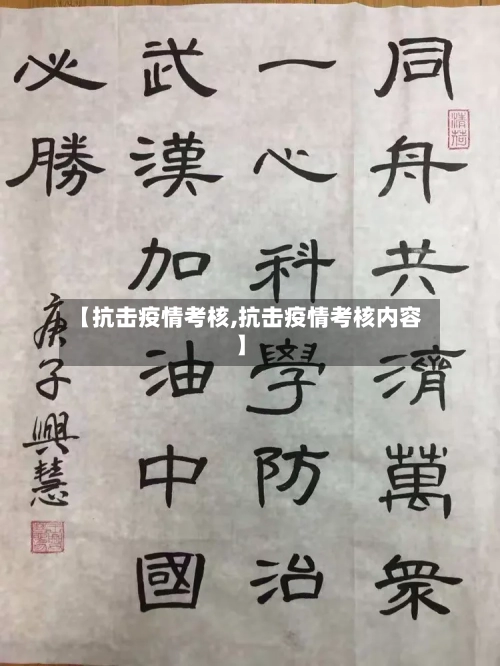 同舟共濟萬衆
一心科學防治
武漢加油中國
必勝
庚子興慧
【抗击疫情考核,抗击疫情考核内容
】